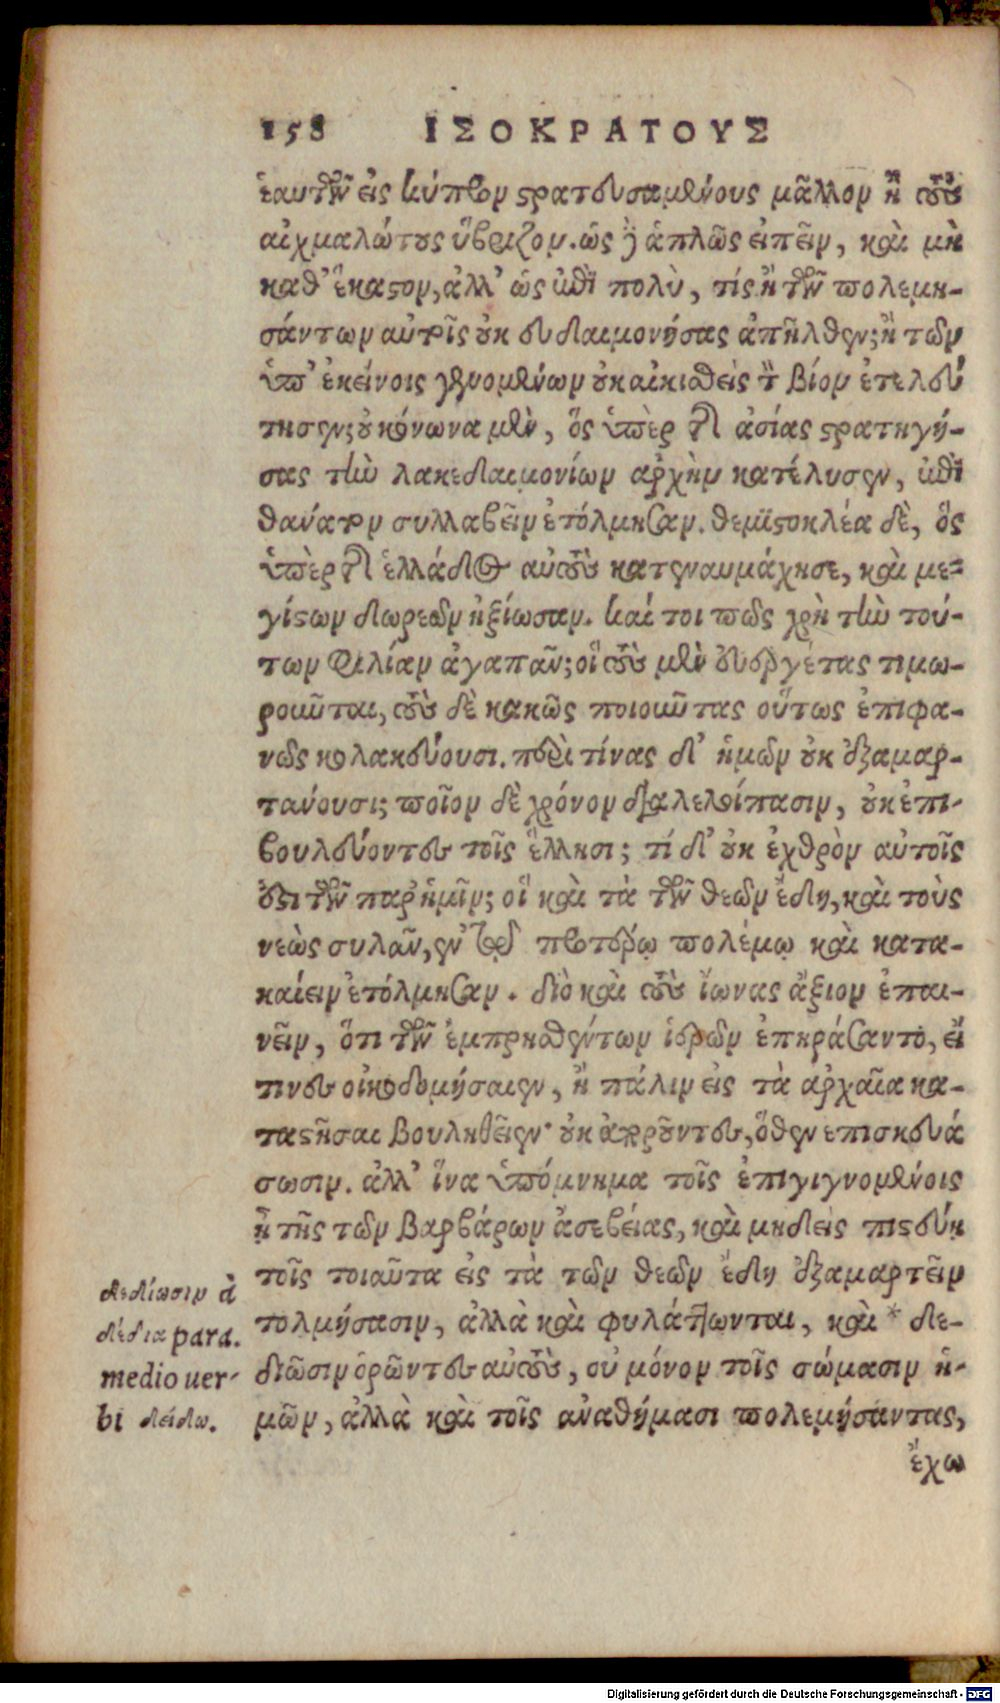 158 ΙΣΟΚΡΑΤΟΥΣ
ἑαυτῶν εἰς κύπρον στρατευσαμένους μᾶλλον ἢ τοὺς
αἰχμαλώτους ὕβριζον. ὡς δὲ ἁπλῶς εἰπεῖν, καὶ μὴ
καθ' ἕκαστον, ἀλλ' ὡς ἐπὶ πολὺ, τίς ἢ τῶν πολεμη-
σάντων αὐτοῖς οὐκ εὐδαιμονήσας ἀπῆλθεν; ἢ τῶν
ὑπ' ἐκείνοις γενομένων οὐκ αἰκισθεὶς τὸν βίον ἐτελεύ
τησεν; οὐ κόνωνα μὲν, ὃς ὑπὲρ τῆς ἀσίας στρατηγή-
σας τὴν λακεδαιμονίων ἀρχὴν κατέλυσεν, ἐπὶ
θανάτῳ συλλαβεῖν ἐτόλμησαν. θεμιστοκλέα δὲ, ὃς
ὑπὲρ τῆς ἑλλάδος αὐτοὺς κατεναυμάχησε, καὶ με-
γίστων δωρεῶν ἠξίωσαν. καί τοι πῶς χρὴ τὴν τού-
των φιλίαν ἀγαπᾶν; οἳ τοὺς μὲν εὐεργέτας τιμω-
ροῦνται, τοὺς δὲ κακῶς ποιοῦντας οὕτως ἐπιφα-
νῶς κολακεύουσι. περὶ τίνας δ' ἡμῶν οὐκ ἐξαμαρ-
τάνουσι; ποῖον δὲ χρόνον διαλελοίπασιν, οὐκ ἐπι-
βουλεύοντες τοῖς ἕλλησι; τί δ' οὐκ ἐχθρὸν αὐτοῖς
ἐστι τῶν παρ' ἡμῖν; οἳ καὶ τὰ τῶν θεῶν ἕδη, καὶ τοὺς
νεὼς συλᾶν, ἐν τῷ προτέρῳ πολέμῳ καὶ κατα-
καίειν ἐτόλμησαν. διὸ καὶ τοὺς ἴωνας ἄξιον ἐπαι-
νεῖν, ὅτι τῶν ἐμπρησθέντων ἱερῶν ἐπηράσαντο, εἴ
τινες οἰκοδομήσαιεν, ἢ πάλιν εἰς τὰ ἀρχαῖα κα-
ταστῆσαι βουληθεῖεν· οὐκ ἀποροῦντες, ὅθεν επισκευά
σωσιν. ἀλλ' ἵνα ὑπόμνημα τοῖς ἐπιγιγνομένοις
ᾖ τῆς τῶν βαρβάρων ἀσεβείας, καὶ μηδεὶς πιστεύῃ
τοῖς τοιαῦτα εἰς τὰ τῶν θεῶν ἕδη ἐξαμαρτεῖν
τολμήσασιν, ἀλλὰ καὶ φυλάττωνται, καὶ * δε-
διῶσιν ὁρῶντες αὐτοὺς, οὐ μόνον τοῖς σώμασιν ἡ-
μῶν, ἀλλὰ καὶ τοῖς ἀναθήμασι πολεμήσαντας,
ἔχω
δεδίωσιν à
δέδια para.
medio uer-
bi δείδω.
Digitalisierung gefördert durch die Deutsche Forschungsgemeinschaft - DFG